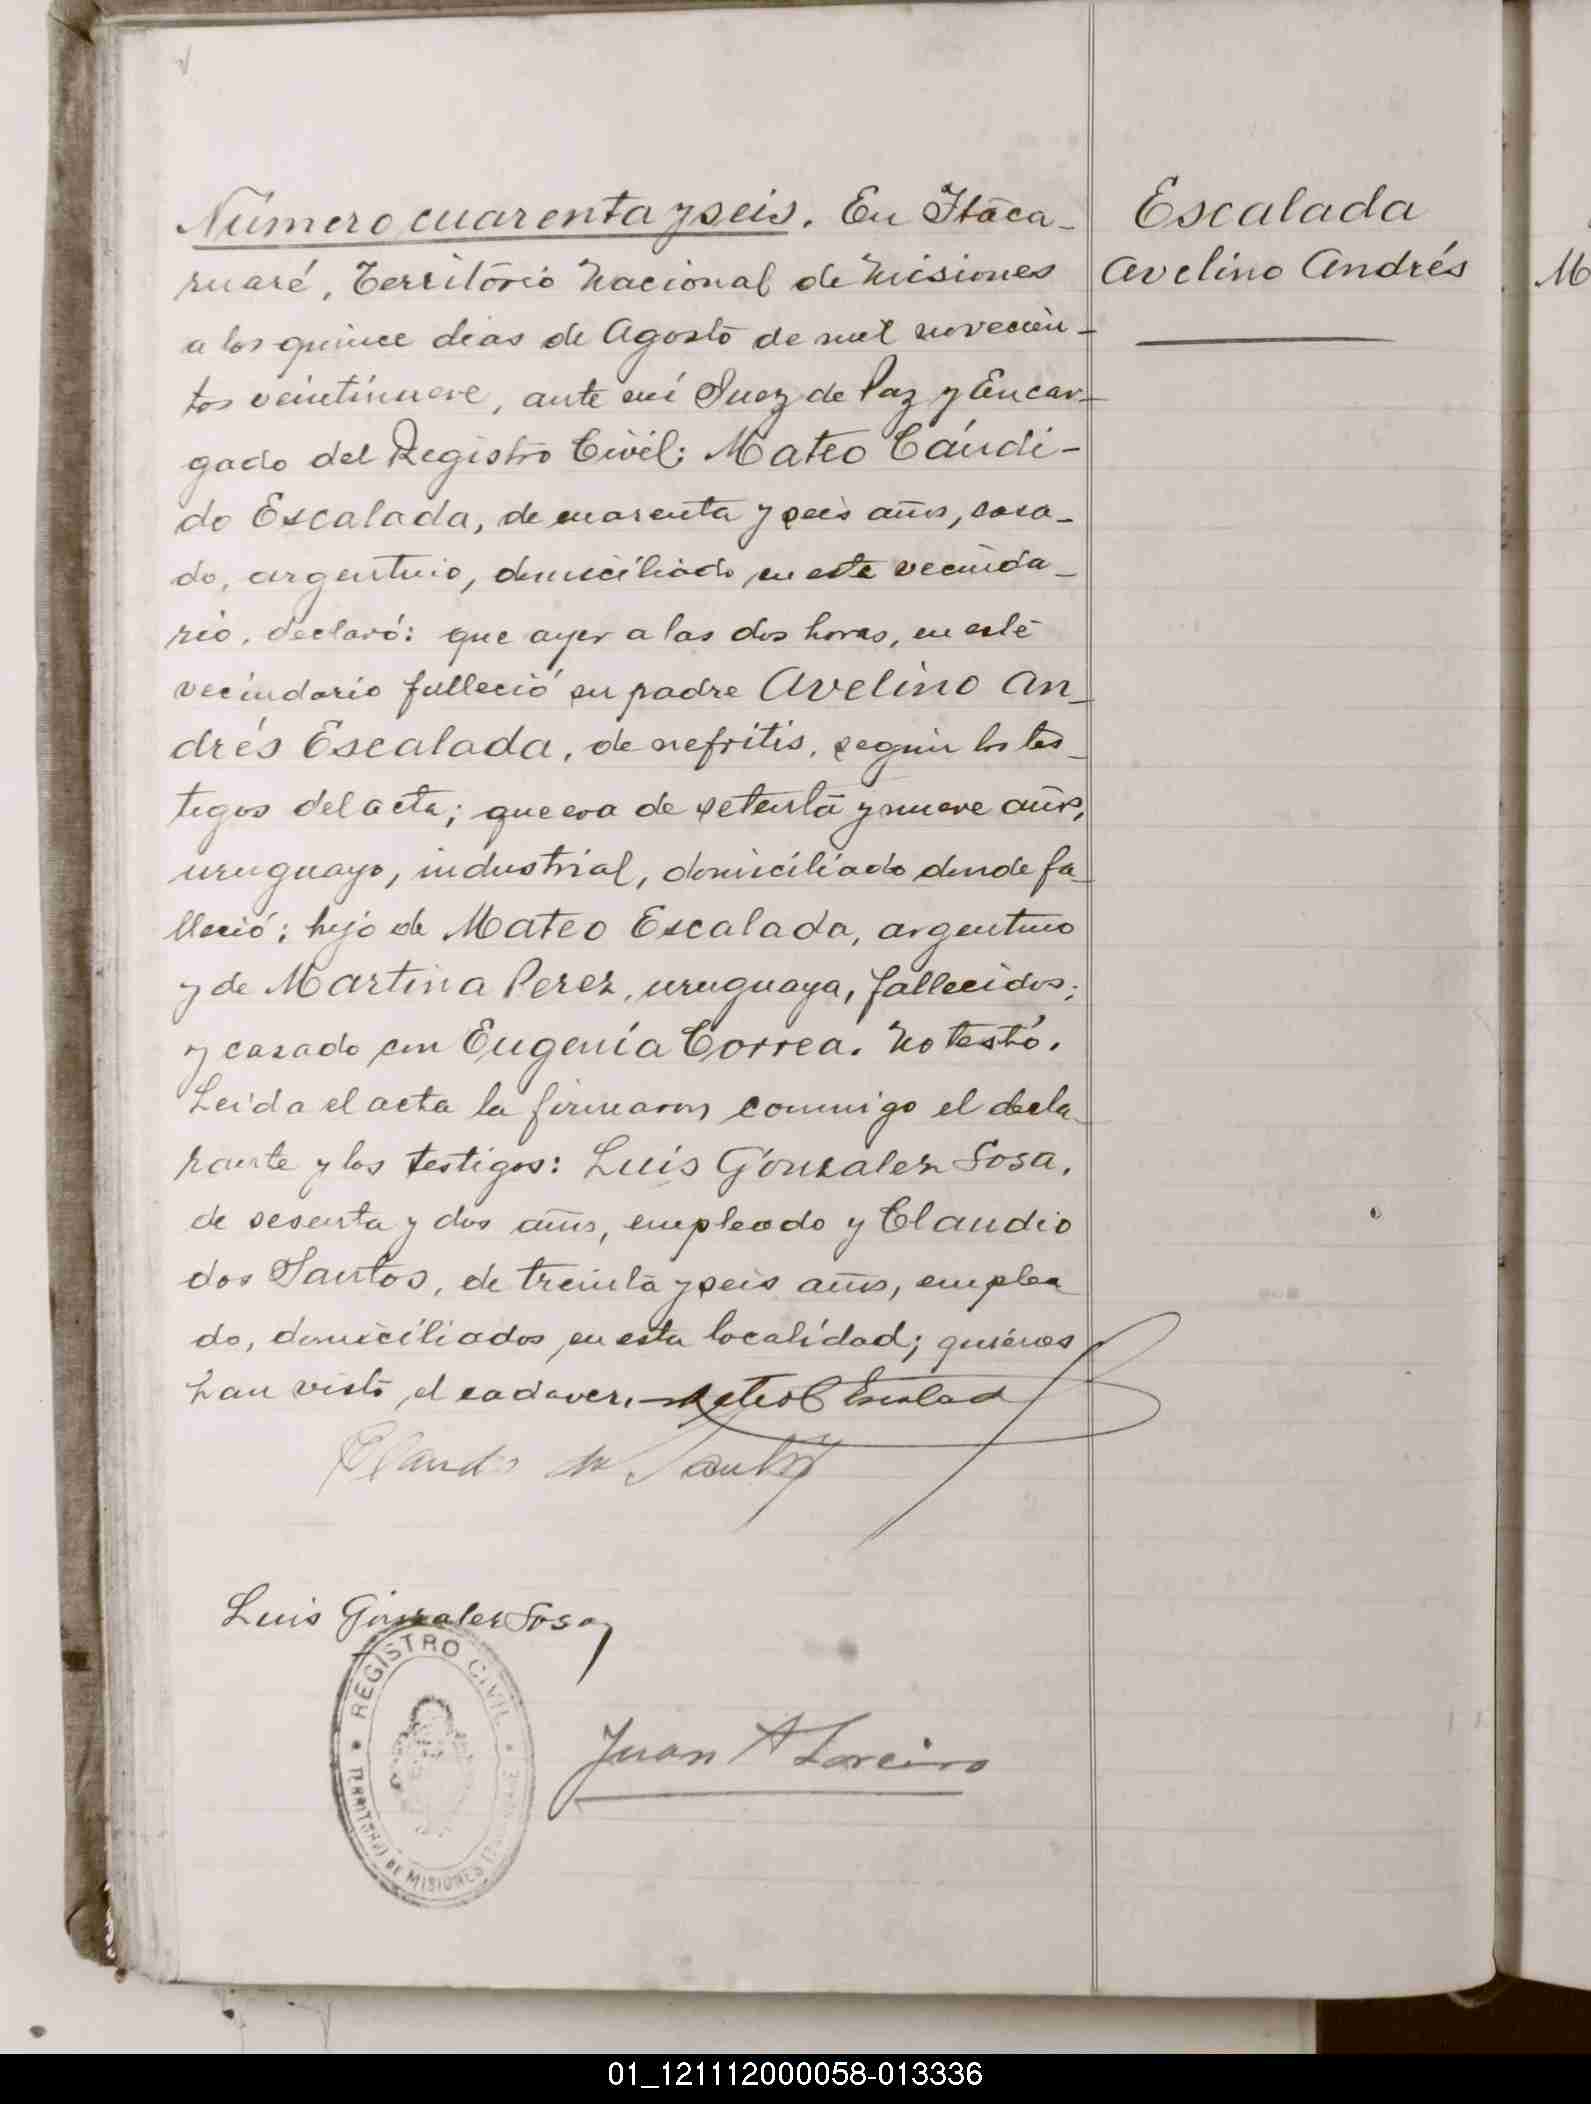 Número cuarenta y seis. En Itaca-
ruaré, Territorio Nacional de Misiones
a los quince dias de Agosto de mil novecien-
tos veintinueve, ante mí Juez de Paz y Encar-
gado del Registro Civil: Mateo Cándi-
do Escalada, de cuarenta y seis años, casa-
do, argentino, domiciliado en este vecinda-
rio, declaró: que ayer a las dos horas, en este
vecindario falleció su padre Avelino An-
drés Escalada, de nefritis, segun los tes-
tigos del acta; que era de setenta y nueve años,
uruguayo, industrial, domiciliado donde fa-
lleció; hijo de Mateo Escalada, argentino
y de Martina Perez, uruguaya, fallecidos;
y casado con Eugenia Correa. No testó.
Leida el acta la firmaron conmigo el decla-
rante y los testigos: Luis Gonzalez Sosa,
de sesenta y dos años, empleado y Claudio
dos Santos, de treinta y seis años, emplea
do, domiciliados en esta localidad; quienes
han visto el cadaver. Mateo C Escalad
Claudio dos Santos
Luis Gonzalez Sosa
REGISTRO CIVIL
TERRITORIO DE MISIONES
Juan A Loreiro
Escalada
Avelino Andrés
M
01_121112000058-013336